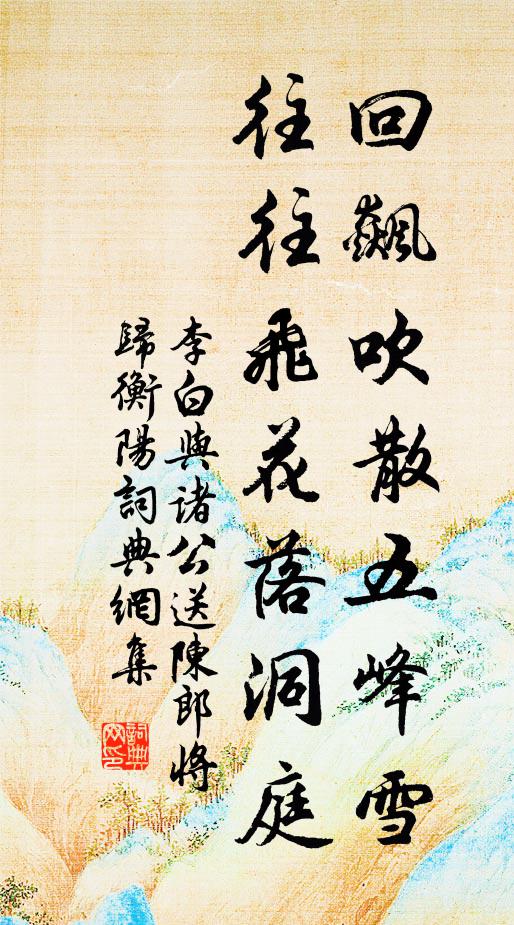 回飆吹散五峰雪
往往飛花落洞庭
李白與諸公送陳郎將
歸衡陽詞典網集
詞典
网印